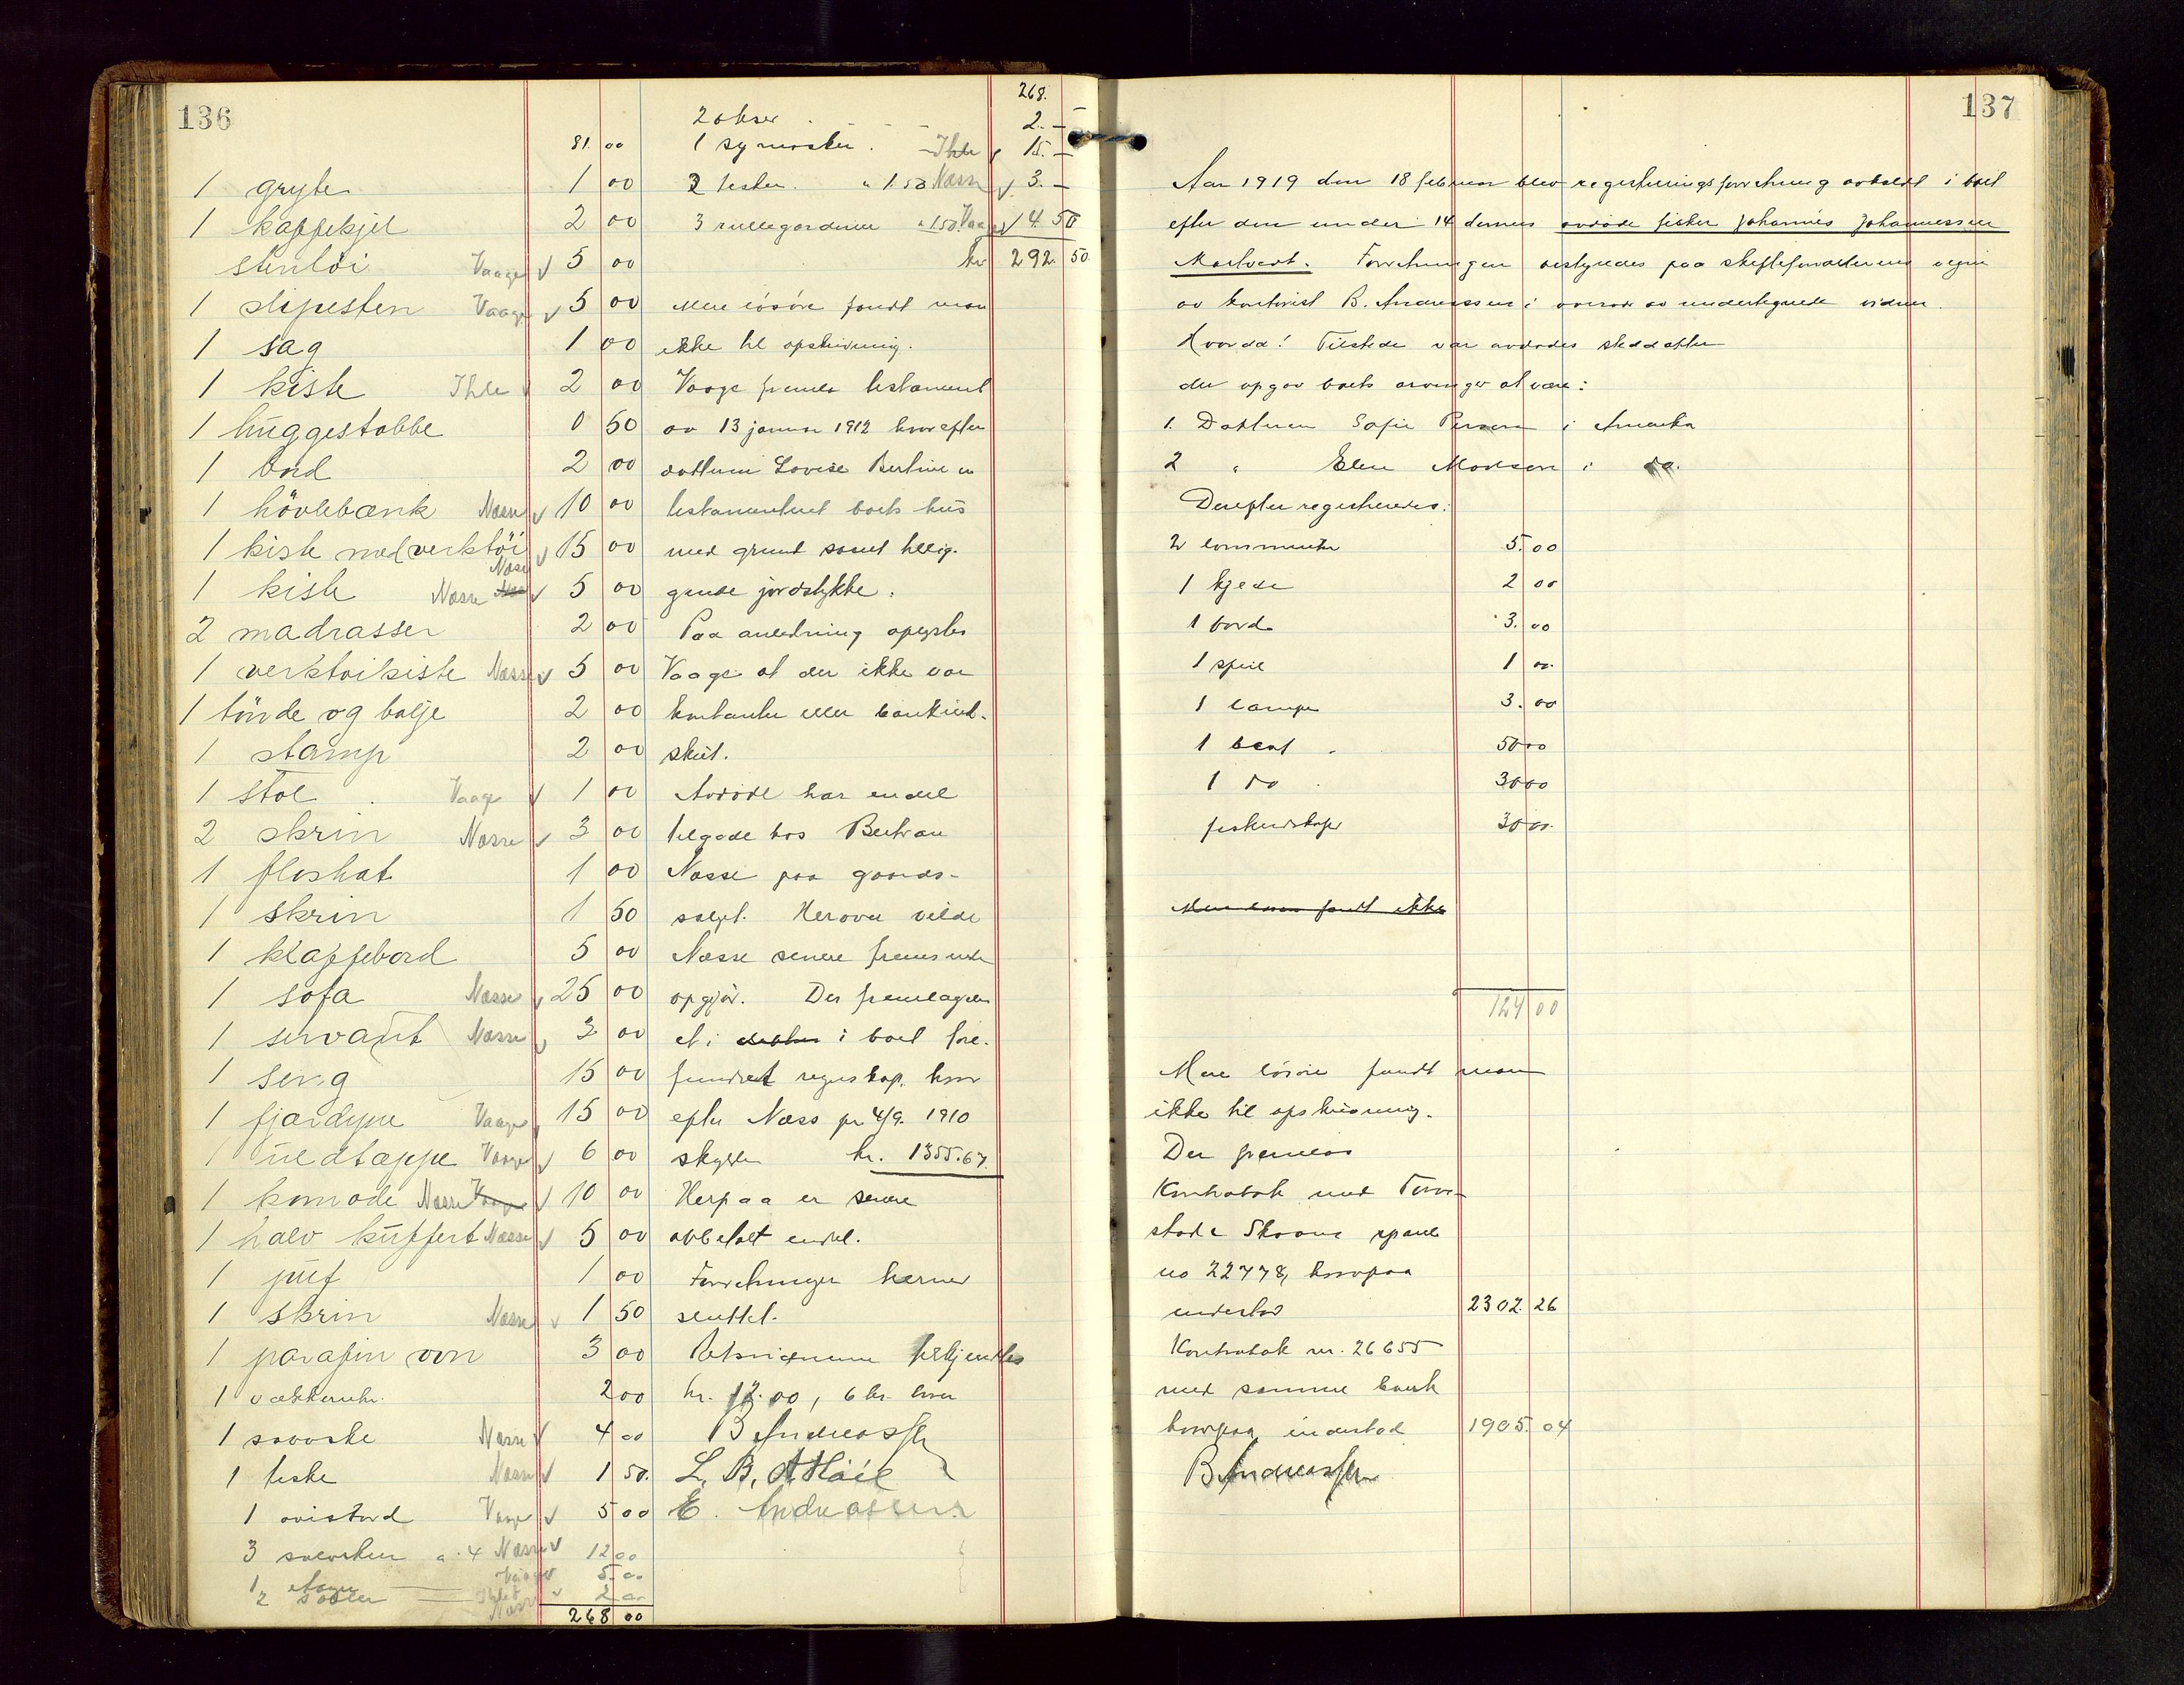 136
81. 00
1 gryte 1 00
1 kaffekjel 2 00
stentöi Vaage v 5 00
1 slipesten Vaage v 5 00
1 sag 1 00
1 kiste Ihle v 2 00
1 huggestabbe 0 50
1 bord 2 00
1 hövlebænk Næsse v 10 00
1 kiste med verktöi Næsse v 15 00
1 kiste Næsse v 5 00
2 madrasser 2 00
1 verktoikiste Næsse v 5 00
1 tönde og balje 2 00
1 stamp 2 00
1 stol Vaage v 1 00
2 skrin Næsse v 3 00
1 floshat 1 00
1 skrin 1 50
1 klaffebord 5 00
1 sofa Næsse v 25 00
1 servant Næsse v 3 00
1 seng 15 00
1 fjærdyne Vaage v 15 00
1 uldtæppe Vaage v 6 00
1 komode Næsse Vaage v 10 00
1 halv kuffert Næsse v 5 00
1 puf 1 00
1 skrin Næsse v 1 50
1 parafin ovn 3 00
1 vækkeruhr. 2 00
1 Næsse v 4 00
1 teske Næsse v 1 50.
1 avisbord Vaage v 5 00
3 sølvskeer a 4 Næsse v 12 00
1 Vaage v 5.00
2 Ihle v 2 00
Næsse
268 00
268.
2 økser 2. –
1 symaskin. Ihle v 15. –
2 tesker. a 1.50 Næsse v 3. –
3 rullegardiner a 1.50 Vaage v 4 50
kr 292. 50
Mere lösöre fandt man
ikke til opskrivning.
Vaage fremla testament
av 13 januar 1912 hvorefter
datteren Lovise Bertine er
testamentert boets hus
med grund samt tillig-
gende jordstykke.
Paa anledning oplystes
Vaage at der ikke var
kontanter eller bankind-
skud.
Avdöde har endel
tilgode hos Bertran
Næsse paa gaards-
salget. Herover vilde
Næsse senere fremsende
opgjör. Der fremlagdes
et i i boet fore-
fundet regnskap, hvor
efter Næss pr. 4/9. 1910
skylder kr. 1355.67.
Herpaa er senere
avbetalt endel.
Forretningen hermed
sluttet.
Retsvidnerne tilkjendtes
kr. 12.00, 6 kr. hver
B Andreassen
L. B. A Höie
E. Andreassen
137
Aar 1919 den 18 februar blev registreringsforretning avholdt i boet
efter den under 14 dennes avdöde fisker Johannes Johannessen
Forretningen bestyredes paa skifteforvalterens vegne
av kontorist B. Andreassen i overvær av undertegnede vidner.
Hvorda! Tilstede var avdödes
der opgav boets arvinger at være:
1. Datteren Sofie i Amerika
2 " Elen Madsen i do.
Derefter registreredes:
2 lommeure 5.00
1 kjede 2 00
1 bord 3.00
1 speil 1 00.
1 lampe 3.00
1 baat 50 00
1 do 30 00
fiskeredskaper 30 00.
Mere lösöre fandt ikke
124 00
Mere lösöre fandt man
ikke til opskrivning.
Der fremlaes
Kontrabok med
spareb
no 22778, hvorpaa
indestod 2302. 26
Kontrabok nr. 26655
med samme bank
hvorpaa indestod 1905. 04
B Andreassen